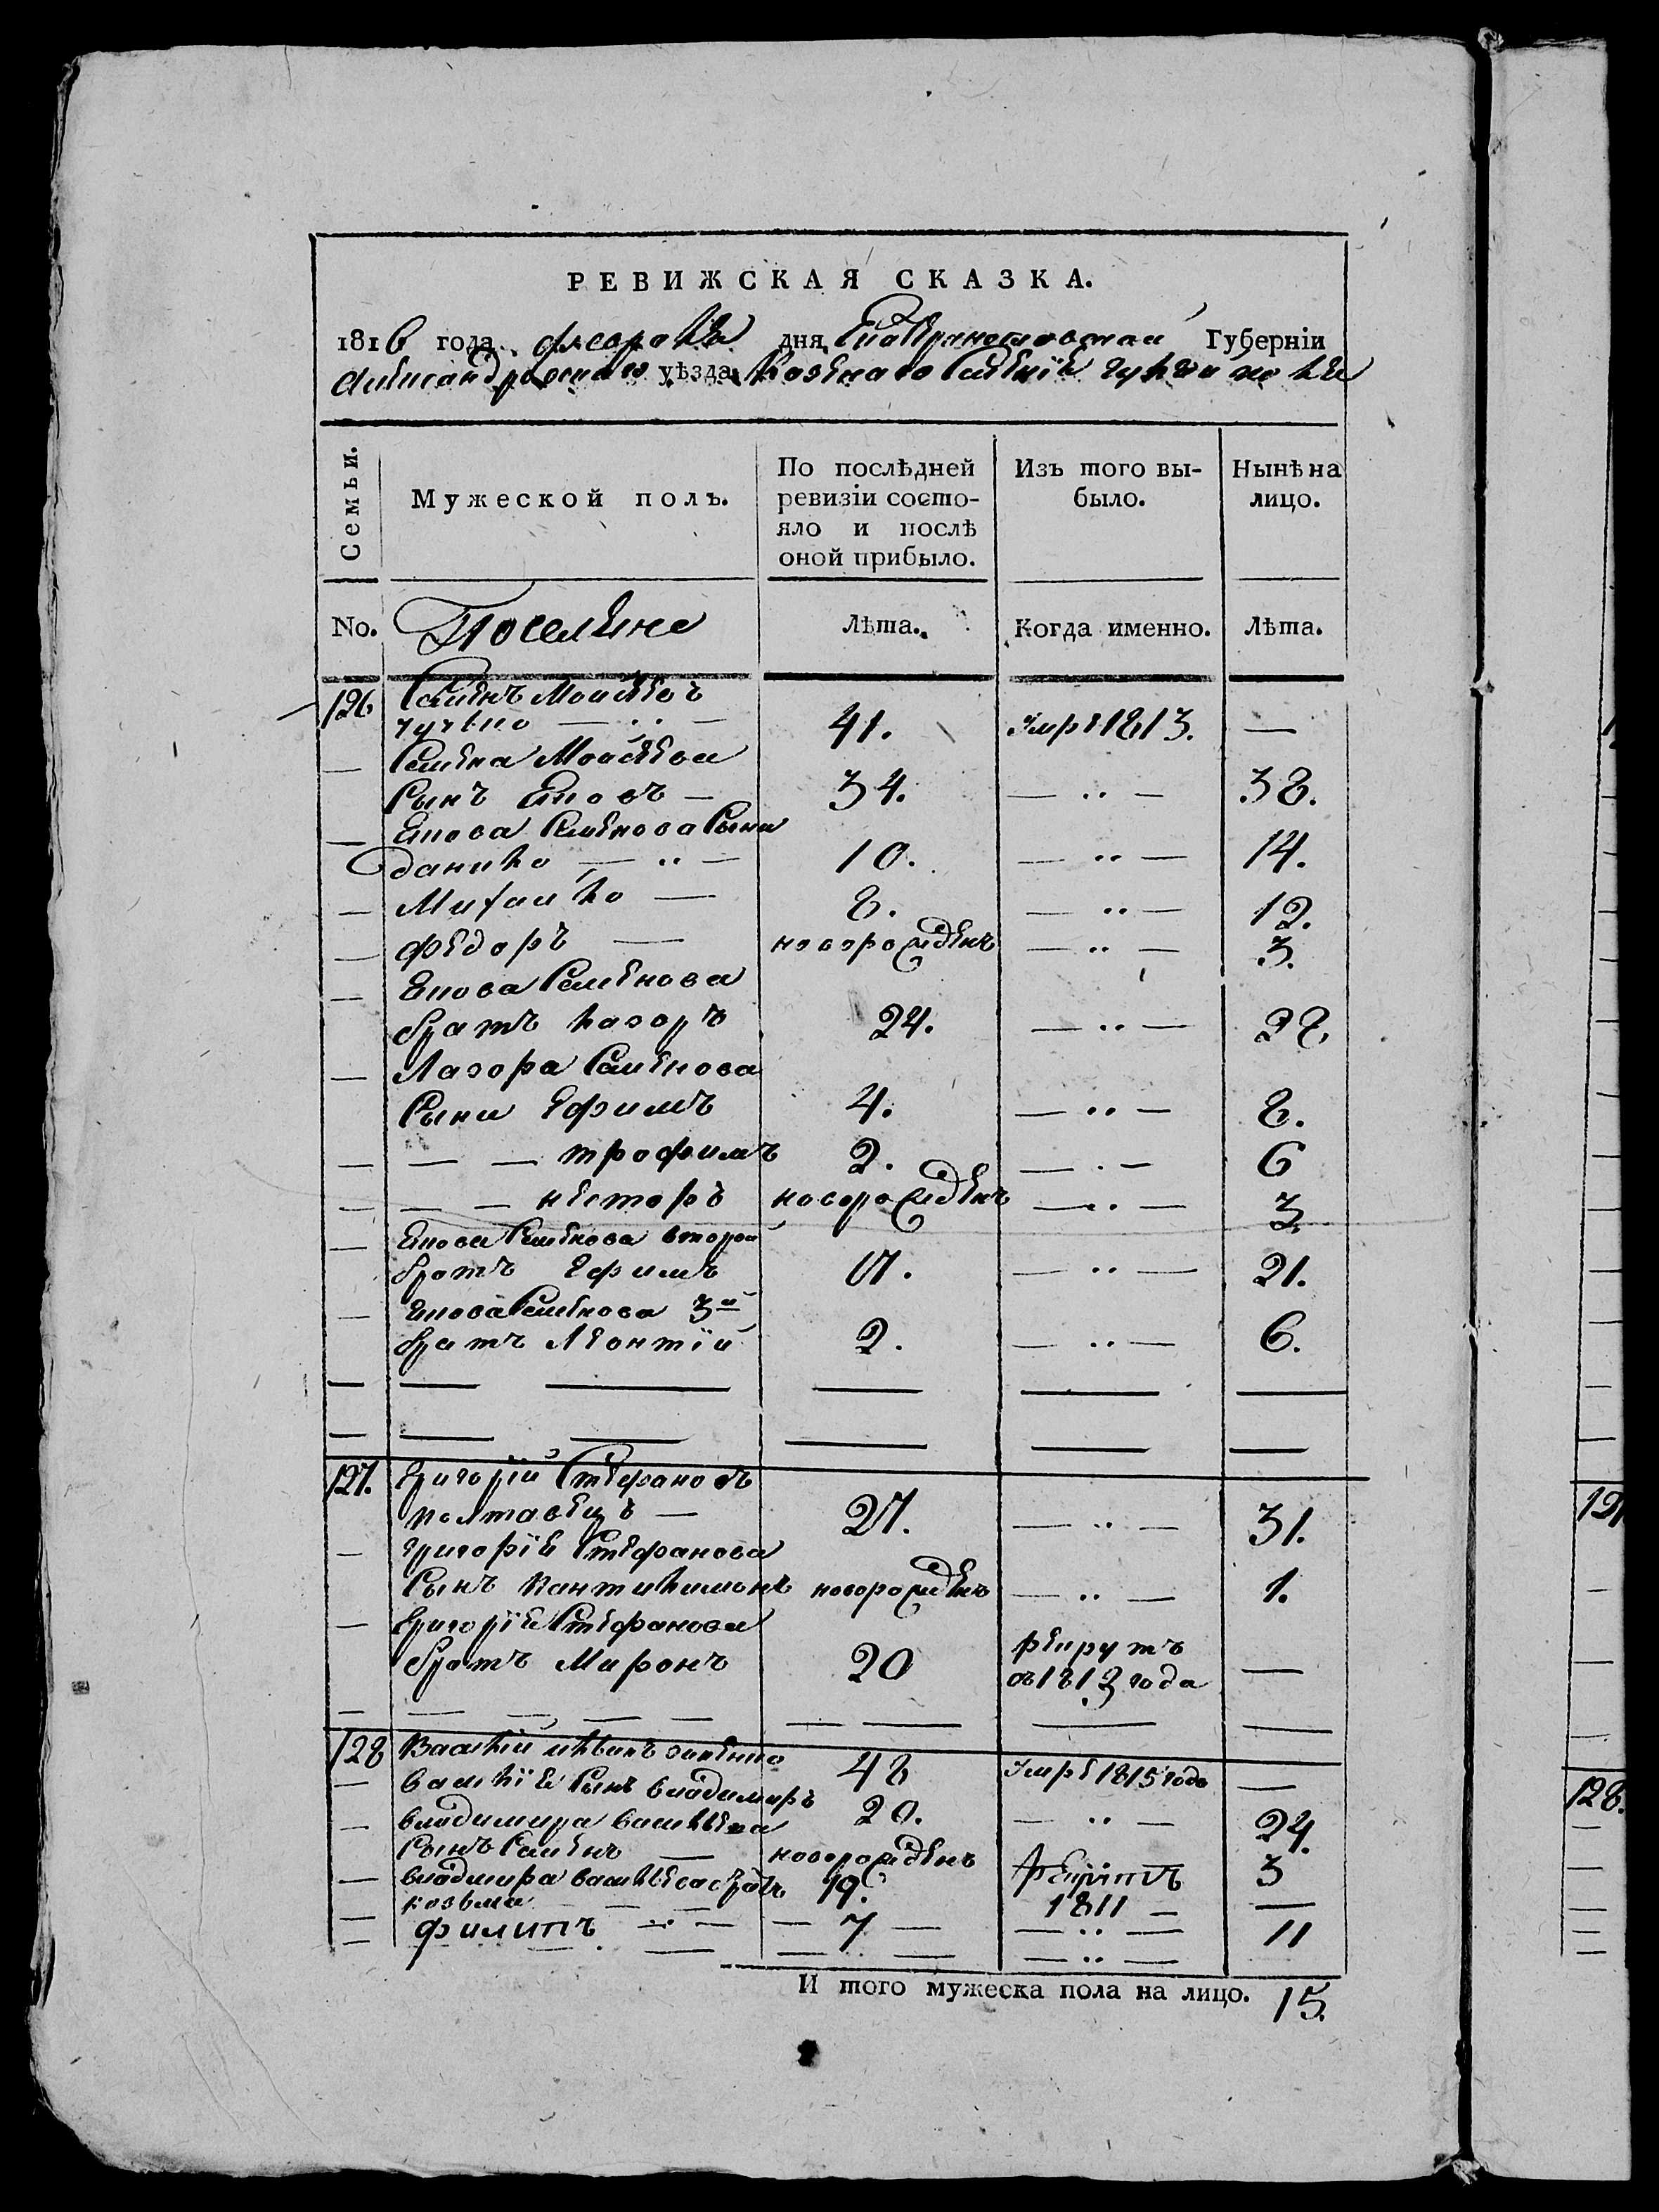 РЕВИЖСКАЯ СКАЗКА.
1816 года февраля дня Екатеринославской Губерніи
Александровскаго уѣзда Казеннаго Селенія
Семьи.
Мужеской полъ.
По послѣдней ревизіи состояло и послѣ оной прибыло.
Изъ того выбыло.
Нынѣ на лицо.
No. Поселяне Лѣта. Когда именно. Лѣта.
126 Семенъ Моисѣевъ
41. Умре 1813. —
— Семена Моисѣева
Сынъ Яковъ — 34. — „ — 38.
— Якова Семенова Сыни
Данило — „ — 10. — „ — 14.
— Михайло — 8. — „ — 12.
— Федоръ — новорожденъ — „ — 3.
— Якова Семенова
братъ лазоръ 24. — „ — 28.
— Лазора Семенова
Сыни Ефимъ 4. — „ — 8.
— — — трофимъ 2. — „ — 6
— — — несторъ новорожденъ — „ — 3.
— Якова Семенова второй
братъ Ефимъ 17. — „ — 21.
— Якова Семенова 3й
братъ Леонтій 2. — „ — 6.
127. Григорій Стефановъ
полтавецъ — 27. — „ — 31.
— Григорія Стефанова
Сынъ Пантилимонъ новорожденъ — „ — 1.
— Григорія Стефанова
братъ Миронъ 20 рекрутъ —
въ 1813 года
128 Василій 48 Умре 1815 года —
— Василія Сынъ владимиръ 20. — „ — 24.
— владимира васильева
Сынъ Семенъ — новорожденъ — „ — 3
— владимира васильева братъ 19. рекрутъ
козьма — — 1811 — —
— филипъ — „ — — 7 — — „ — 11
И того мужеска пола на лицо. 15.